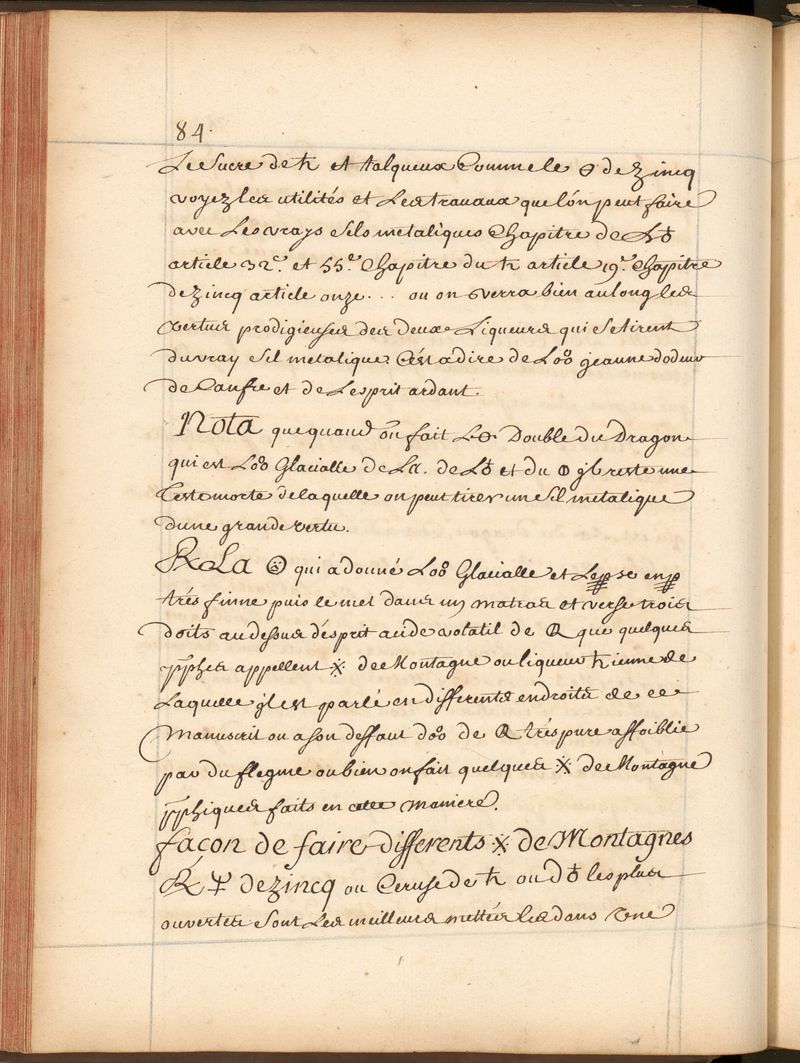 84.
Le Sucre de ♄ et talqueux Comme le 🜔 de Zincq
voyez les utilités et Les travaux que l'on peut faire
avec Les vrays Sels metaliques Chapitre de L♁
article 32.e et 55.e Chapitre du ♄ article 19.e Chapitre
de Zincq article onze... ou on verra bien au long les
vertus prodigieuses des deux Liqueurs qui se tirent
du vray Sel metalique C'est a dire de L'oo jeaune dodeur
de Canfre et de Lesprit ardant.
Nota que quand on fait L🜔 Double du Dragon
qui est Loo Glacialle de La. de L♁ et du 🜔 jl reste une
Teste morte de laquelle on peut tirer un Sel metalique
dune grande vertu.
℞ La qui a donné Loo Glacialle et Le se en
trés finne puis le met dans un matras et verse trois
doits au dessus d'esprit acide volatil de que quelques
pphes appellent ⁜ de Montagne ou liqueur ♄ienne de
Laquelle jl est parlé en differents endroits de ce
Manuscrit ou a son deffaut doo de trés pure affoiblie
par du flegme ou bien on fait quelques ⁜ de Montagne
pphiques faits en cette maniere.
façon de faire differents ⁜ de Montagnes
℞ de Zincq ou Ceruse de ♄ ou d♁ les plus
ouvertes Sont Les meilleurs mettés les dans Une